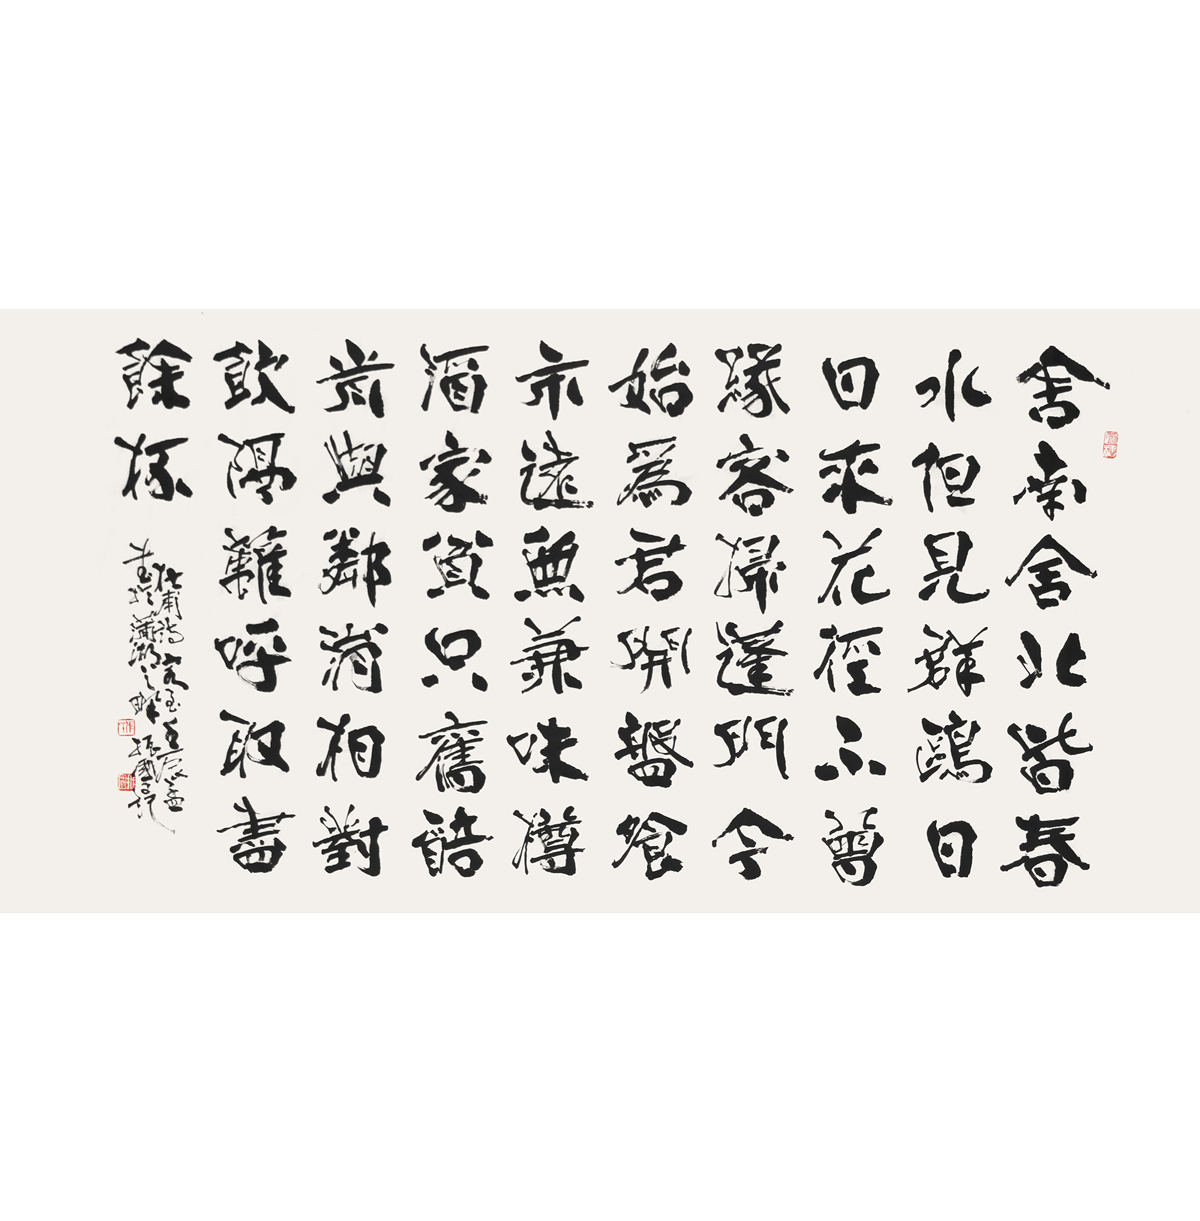 舍南舍北皆春
水但見群鷗日
日來花徑不曾
緣客掃蓬門今
始爲君開盤飧
市遠無兼味樽
酒家貧只舊醅
肯與鄰相對
飲隔籬呼取盡
餘杯
杜甫詩客至壬辰孟
書於瀟湘之畔振國